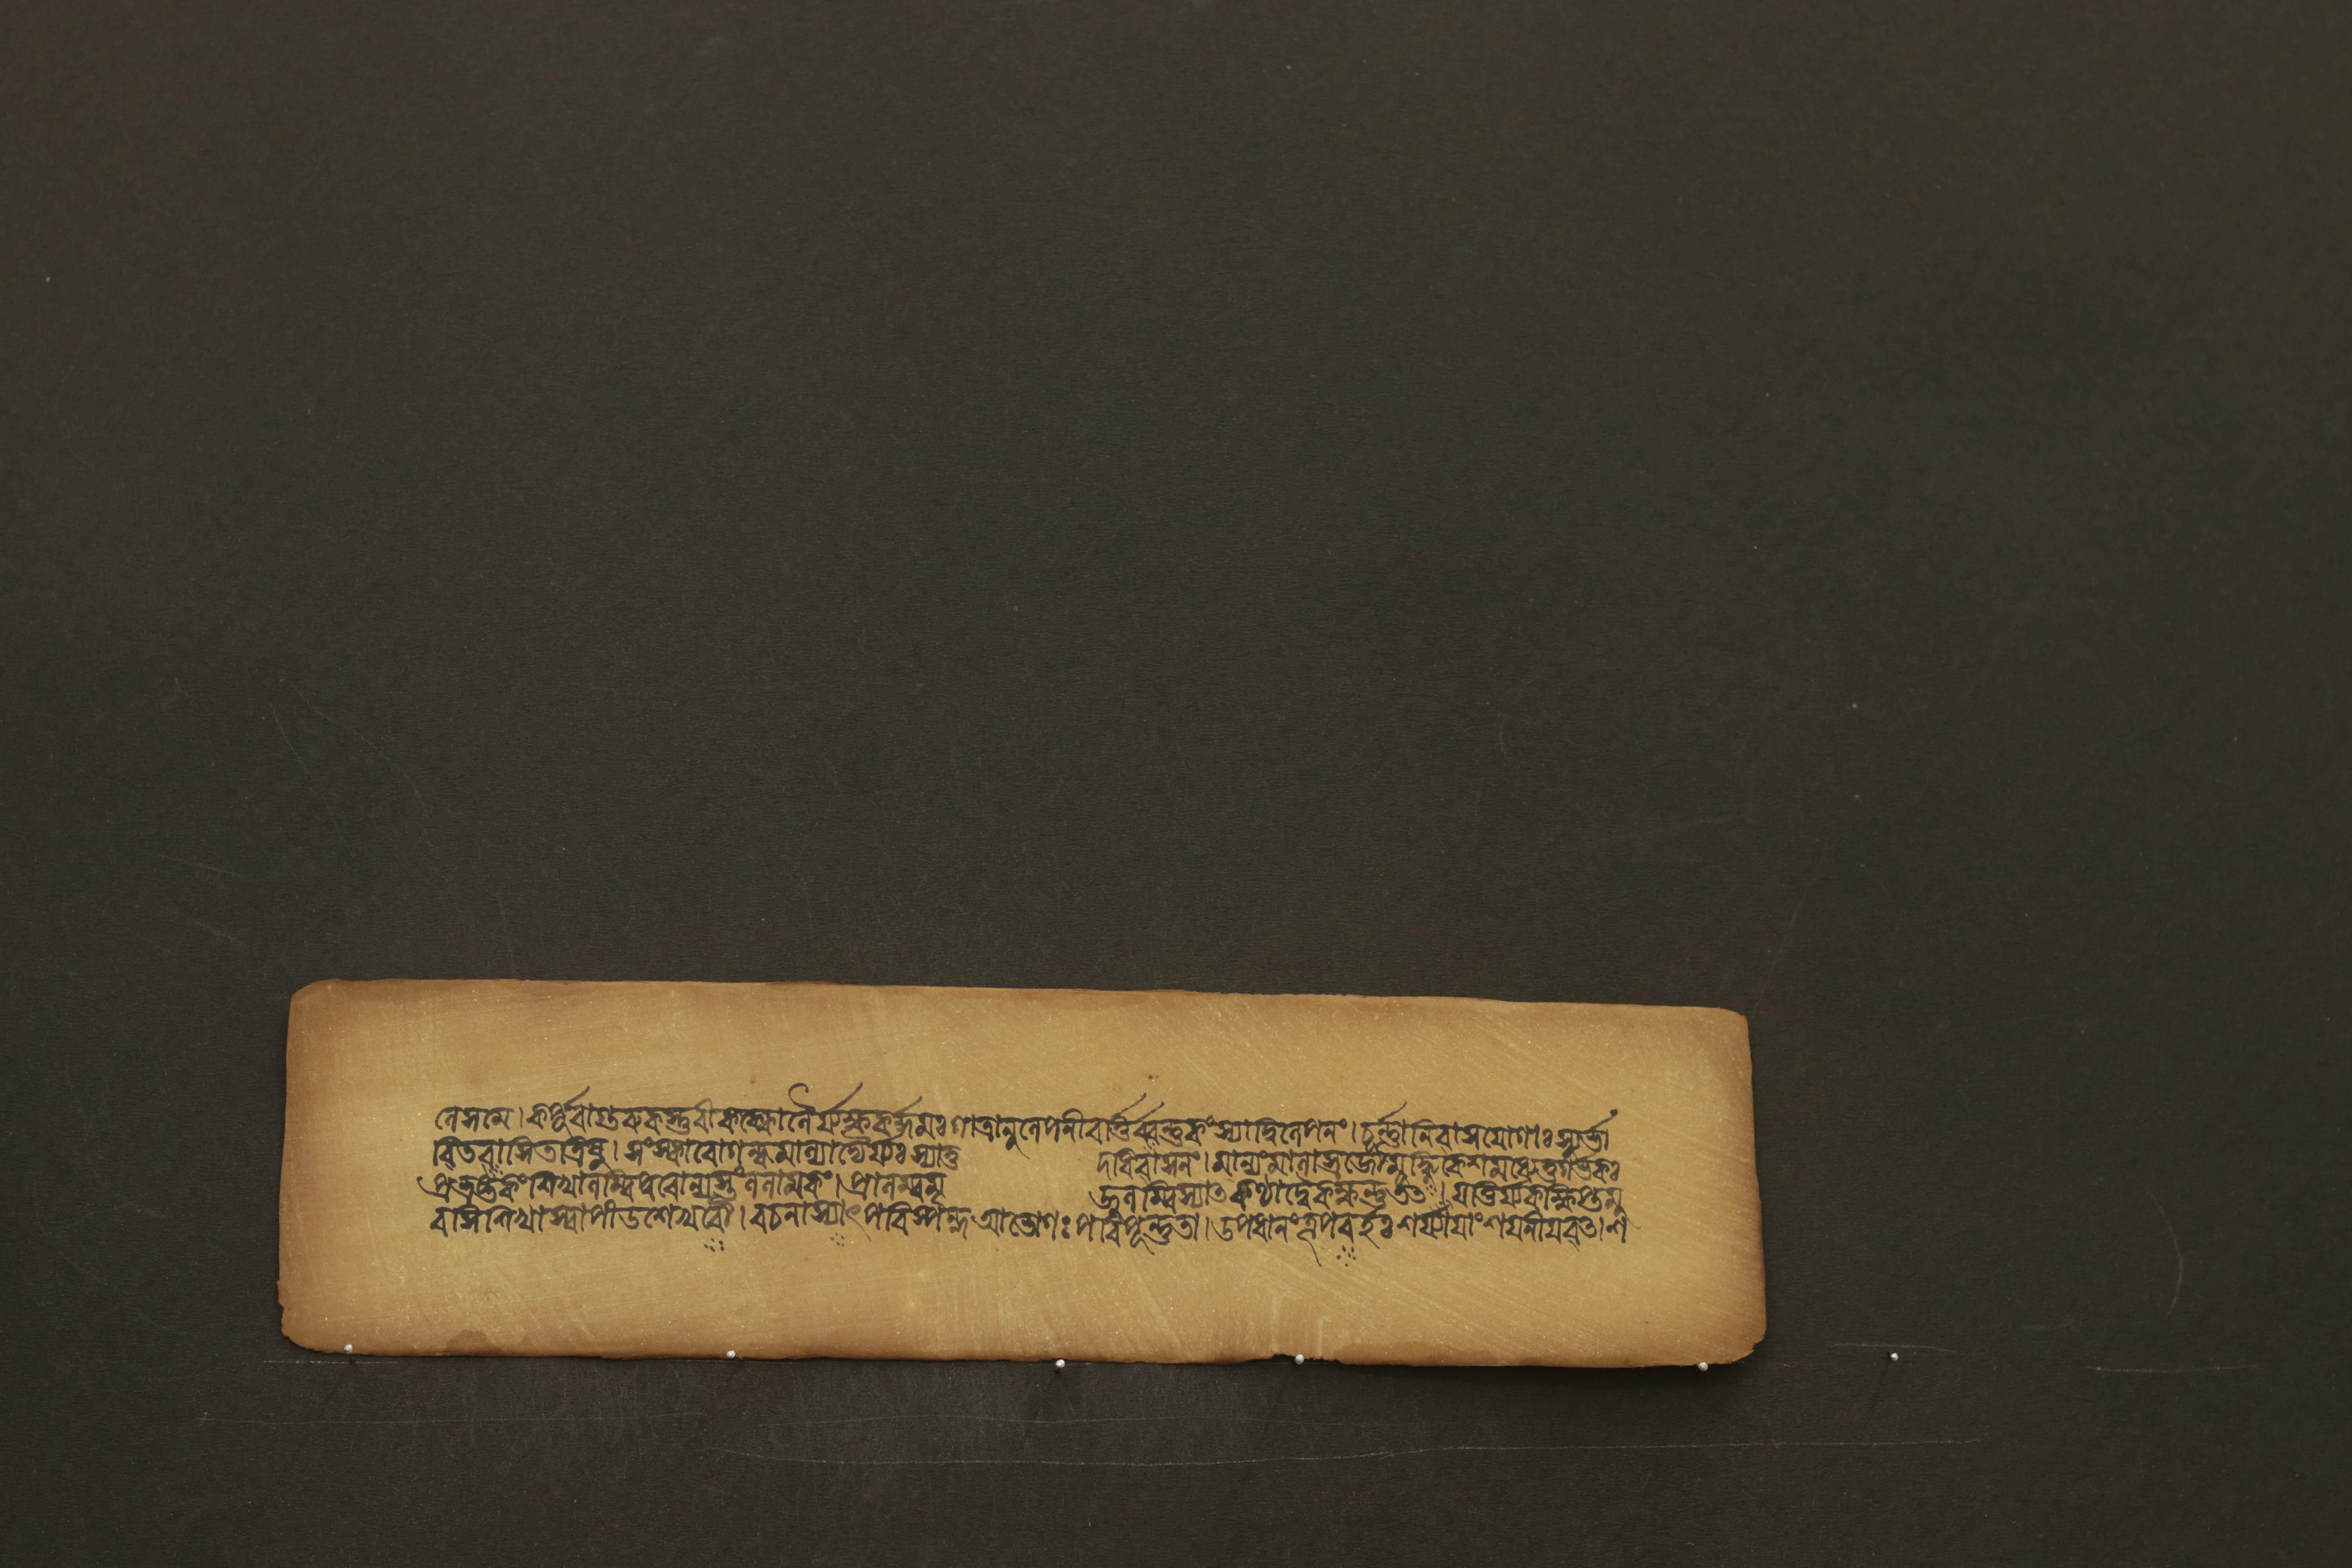 লেসমে। কর্পূৰাগুৰুকস্তূৰীকক্কোলৈর্য্যক্ষকর্দ্দমঃ গাত্রানুলেপনীবর্ত্তির্বর্ন্নকংস্যাদ্বিলেপনং। চূর্ন্নানিবাসযোগাঃস্যুর্ভা
বিতংবাসিতংত্রিষু। সংস্কাৰোগন্ধমাল্যাদ্যৈর্য্যঃস্যাত্ত দধিবাসনং। মাল্যংমালাস্রজৌমূর্দ্ধ্নিকেশমধ্যেতুগর্ভকঃ
প্রভ্রষ্টকংশিখালম্বিপুৰোন্যস্তংললামকং। প্রালম্বমৃ জুলম্বিস্যাৎকণ্ঠাদ্বৈকক্ষকন্তুতৎ। যত্তির্য্যক্ক্ষিপ্তমু
ৰসিশিখাস্বাপীডশেখৰৌ। ৰচনাস্যাৎপৰিস্পন্দআভোগঃপৰিপূর্ন্নতা। উপধানংতূপবর্হঃশয্যাযাংশযনীযবৎ। শ